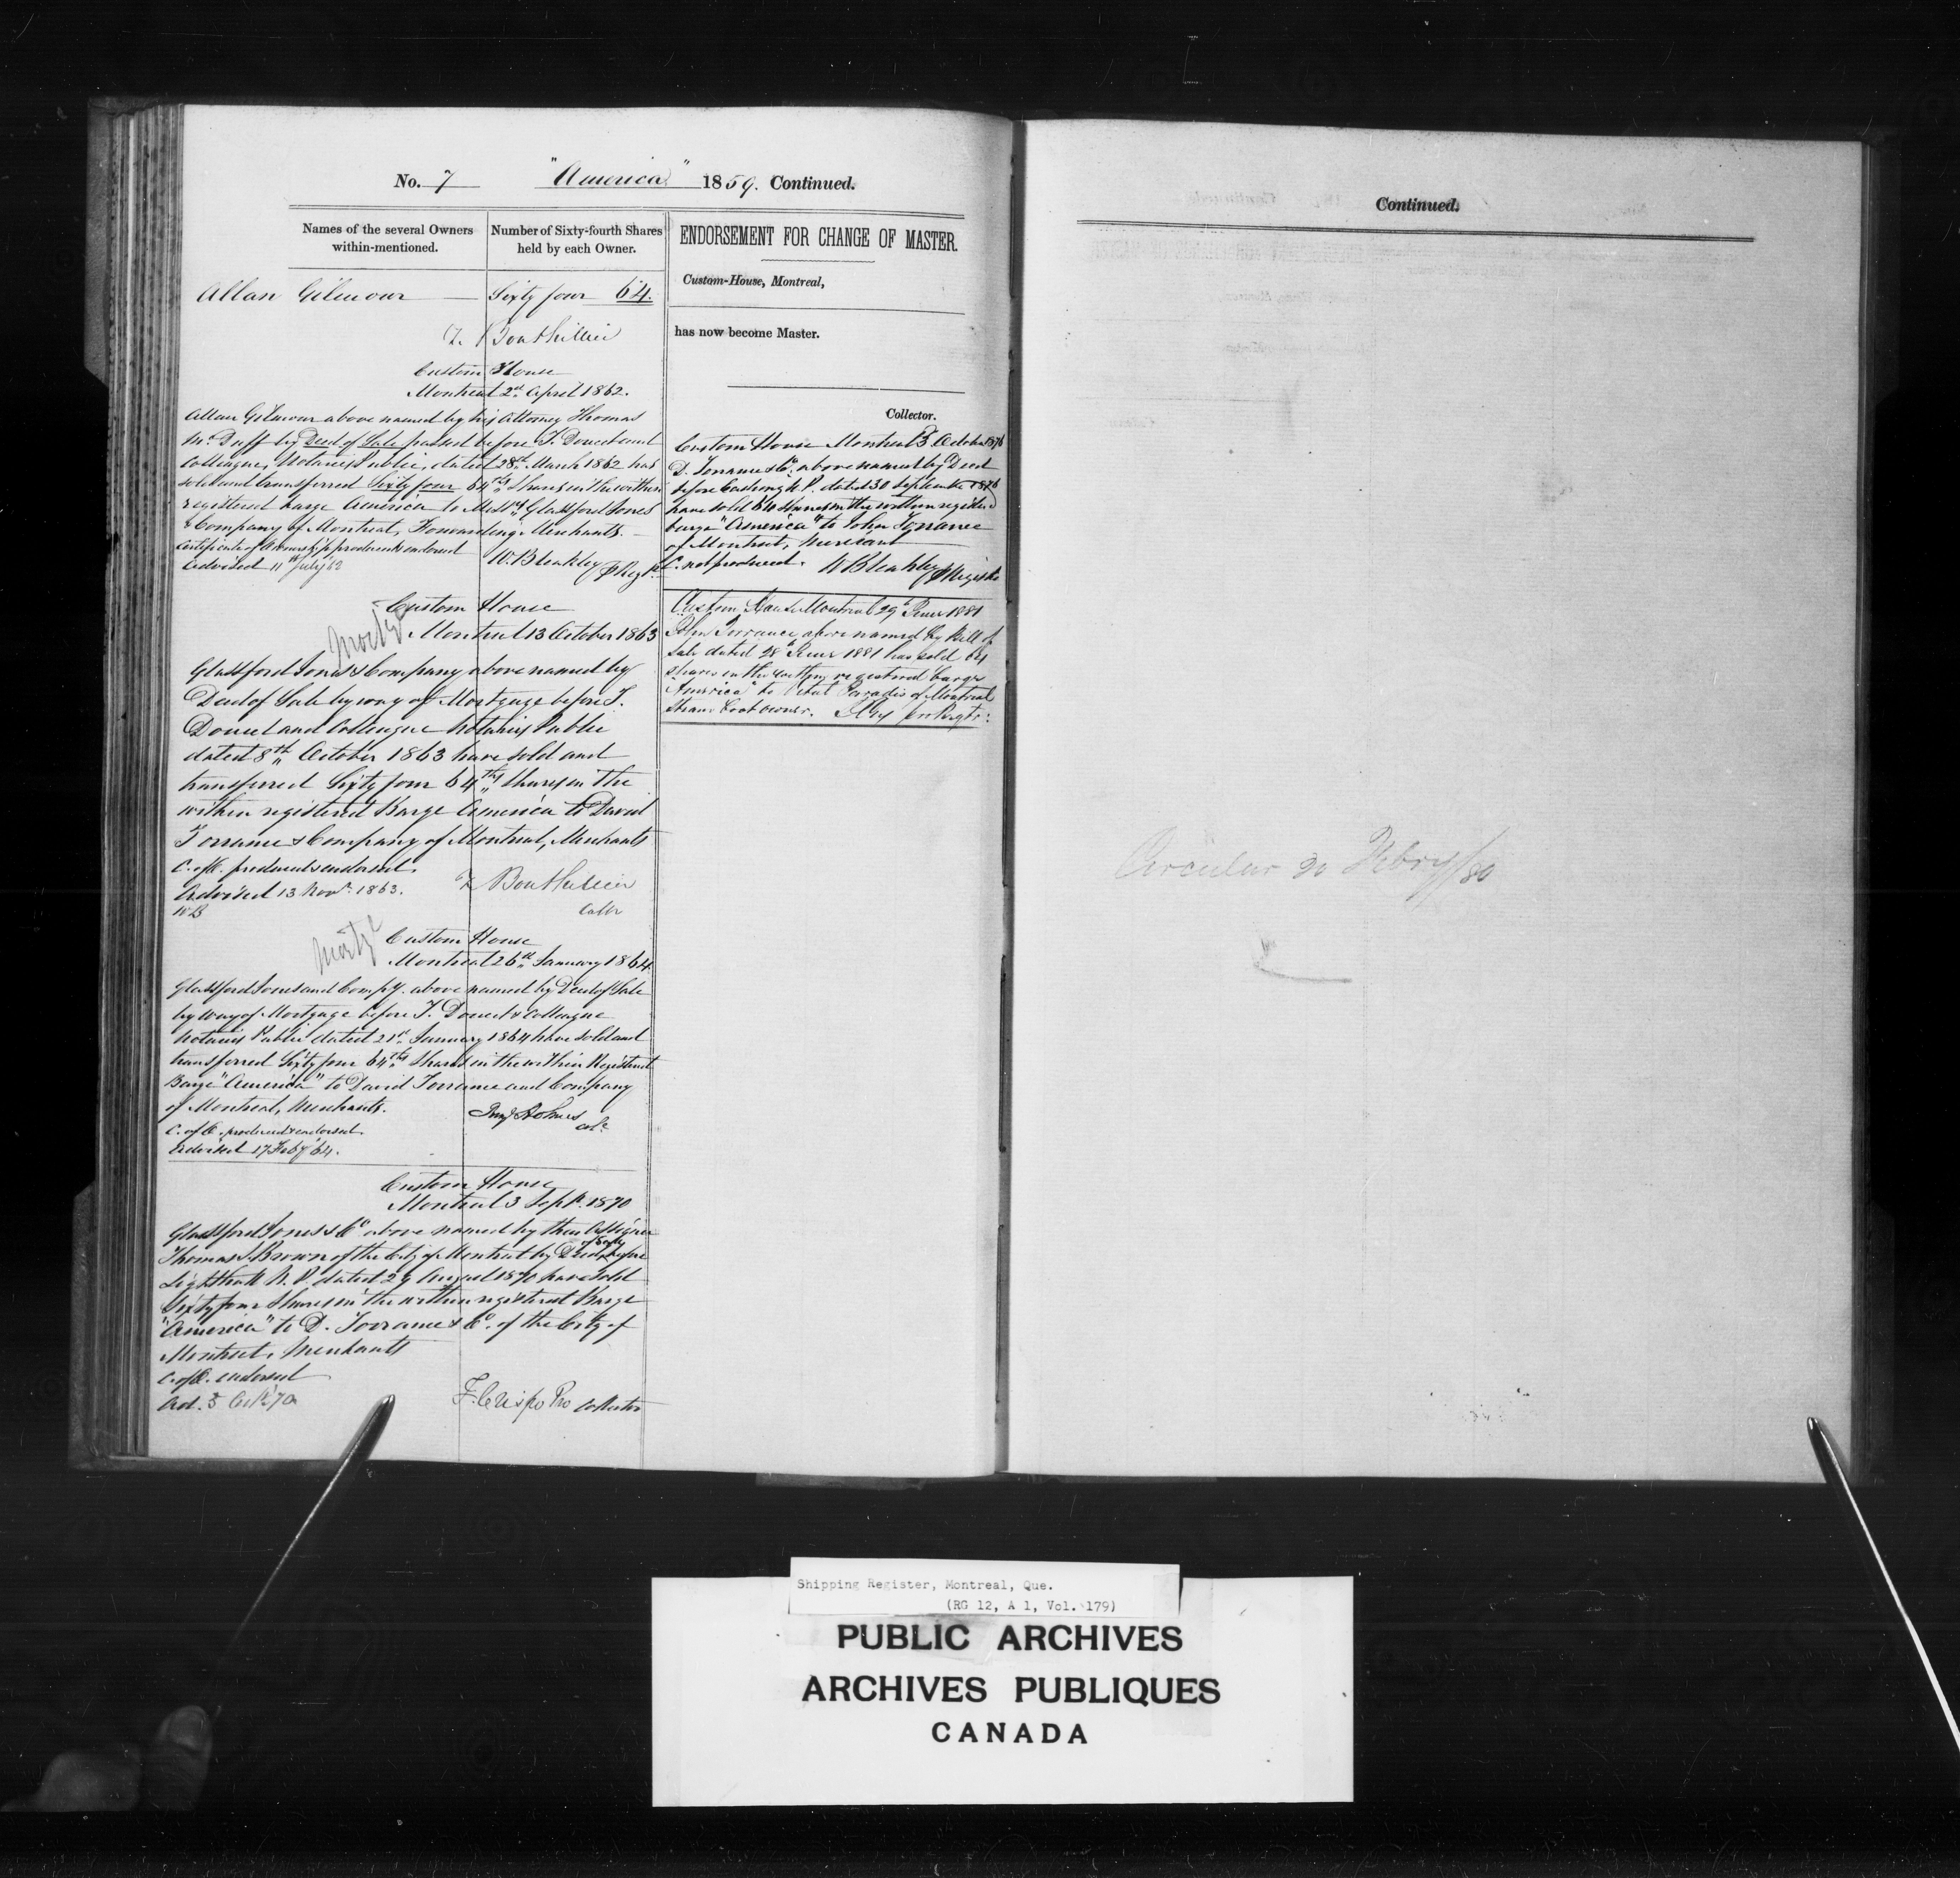 No. 7 "America" 1859. Continued.
Names of the several Owners within-mentioned.
Number of Sixty-fourth Shares held by each Owner.
Allan Gilmour — Sixty four 64.
T. Bouthillier
Custom House
Montreal 2nd April 1862.
Allan Gilmour above named by his Attorney Thomas
McDuff by Deed of Sale passed before T. Doucet and
Colleague, Notaries Public, dated 28th March 1862 has
sold and transferred Sixty four 64ths Shares in the within
registered barge America to Messrs Glassford Jones
& Company of Montreal, Forwarding Merchants. —
Certificate of Ownership produced & endorsed
Advised 11th July 62
W. Bleakley p Regr.
Custom House
Mortge Montreal 13 October 1863
Glassford Jones & Company above named by
Deed of Sale by way of Mortgage before T.
Doucet and Colleague Notaries Public
dated 8th October 1863 have sold and
transferred Sixty four 64ths Shares in the
within registered Barge America to David
Torrance & Company of Montreal, Merchants
C. of O. produced & endorsed.
Advised 13 Novr. 1863.
WB
T Bouthillier
Collr
Custom House
Mortge Montreal 26th January 1864.
Glassford Jones and Compy. above named by Deed of Sale
by way of Mortgage before T. Doucet & Colleague
Notaries Public dated 21st January 1864 have sold and
transferred Sixty four 64ths Shares in the within Registered
Barge "America" to David Torrance and Company
of Montreal, Merchants.
C. of O. produced & endorsed.
Advised 17 Feby 64.
Benj Holmes
Col.
Custom House
Montreal 3 Sept. 1870
Glassford Jones & Co above named by their Assignee
Thomas S. Brown of the City of Montreal by Deed of Sale before
Lighthall N.P. dated 29 August 1870 have sold
Sixty four Shares in the within registered Barge
"America" to D. Torrance & Co. of the City of
Montreal, Merchants
C. of O. endorsed
Ad. 5 70
F. Crispo Pro Collector
ENDORSEMENT FOR CHANGE OF MASTER.
Custom-House, Montreal,
has now become Master.
Collector.
Custom House Montreal 3 October 1876
D. Torrance & Co. above named by Deed
before Cushing N.P. dated 30 September 1876
have sold 64 Shares in the within registered
barge "America" to John Torrance
of Montreal, Merchant
C. not produced. W Bleakley p Registr
Custom House Montreal 29th June 1881
John Torrance above named by Bill of
Sale dated 28th June 1881 has sold 64
shares in the within registered barge
"America" to Paradis of Montreal
Steam boat owner.
Continued.
Circular 30 Febry/80
Shipping Register, Montreal, Que.
(RG 12, A 1, Vol. 179)
PUBLIC ARCHIVES
ARCHIVES PUBLIQUES
CANADA